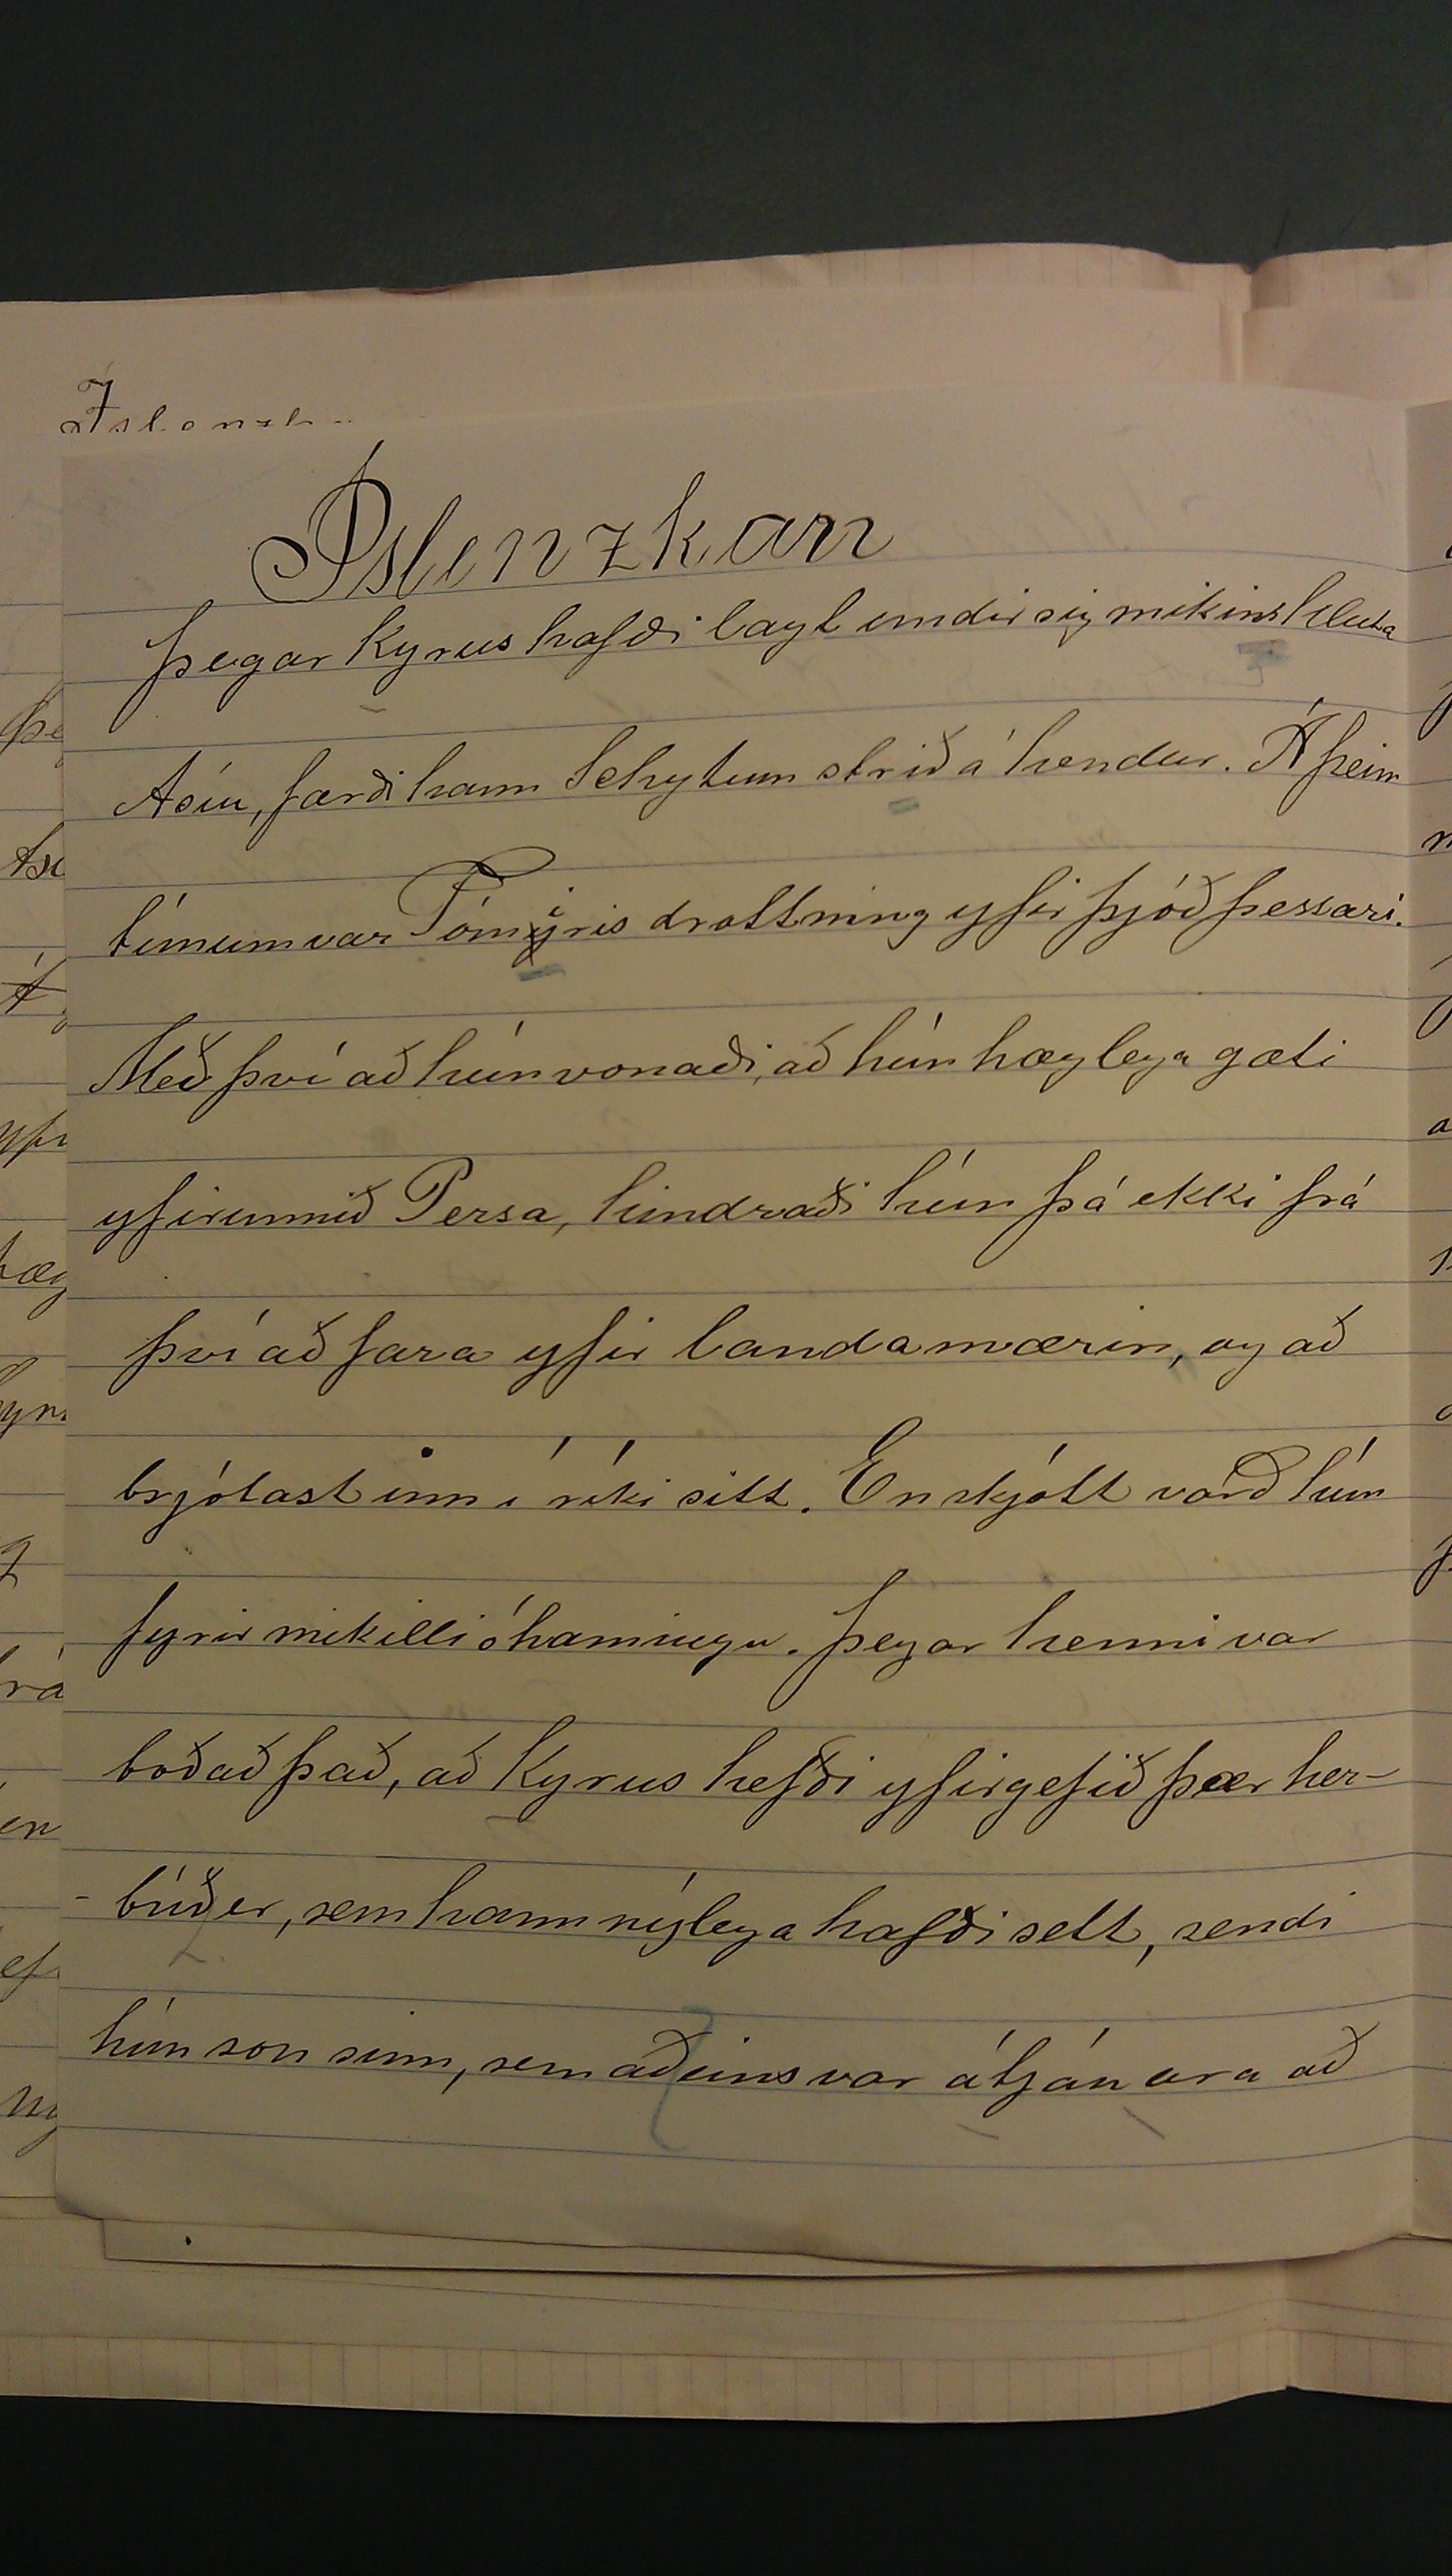 Íslenzkan
Þegar Kyrus hafði lagt undir sig mikins hluta
Asíu, færði hann Schytum strið á hendur. Á þeim
tímum var Tómiris drottning yfir þjóð þessari.
Með því að hún vonaði, að hún hæglega gæti
yfirunnið Persa, hindraði hún þá ekki frá
því að fara yfir landamærin, og að
brjótast inn í ríki sitt. En skjótt várð hún
fyrir mikilli óhamingu. Þegar henni var
boðað það, að Kyrus hefði yfirgefið þær her-
-búðer, sem hann nýlega hafði sett, sendi
hún son sinn, sem aðeins var átján ara að